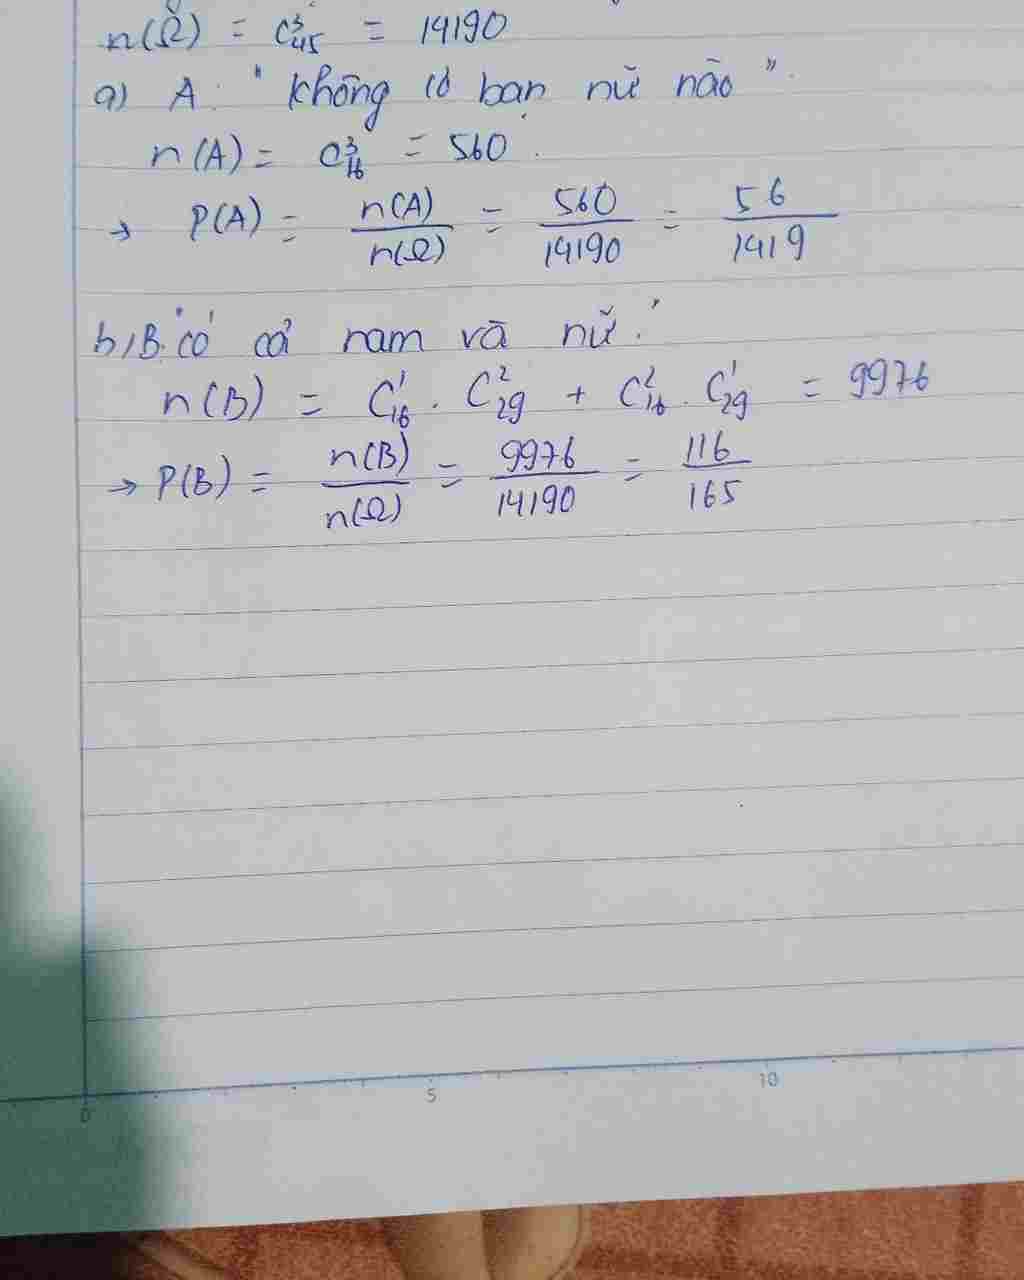 n(Ω) = C³₄₅ = 14190
a) A: "không có bạn nữ nào".
n(A) = C³₁₆ = 560.
→ P(A) = n(A)/n(Ω) = 560/14190 = 56/1419
b, B: "có cả nam và nữ."
n(B) = C¹₁₆ . C²₂₉ + C²₁₆ . C¹₂₉ = 9976
→ P(B) = n(B)/n(Ω) = 9976/14190 = 116/165
0 5 10